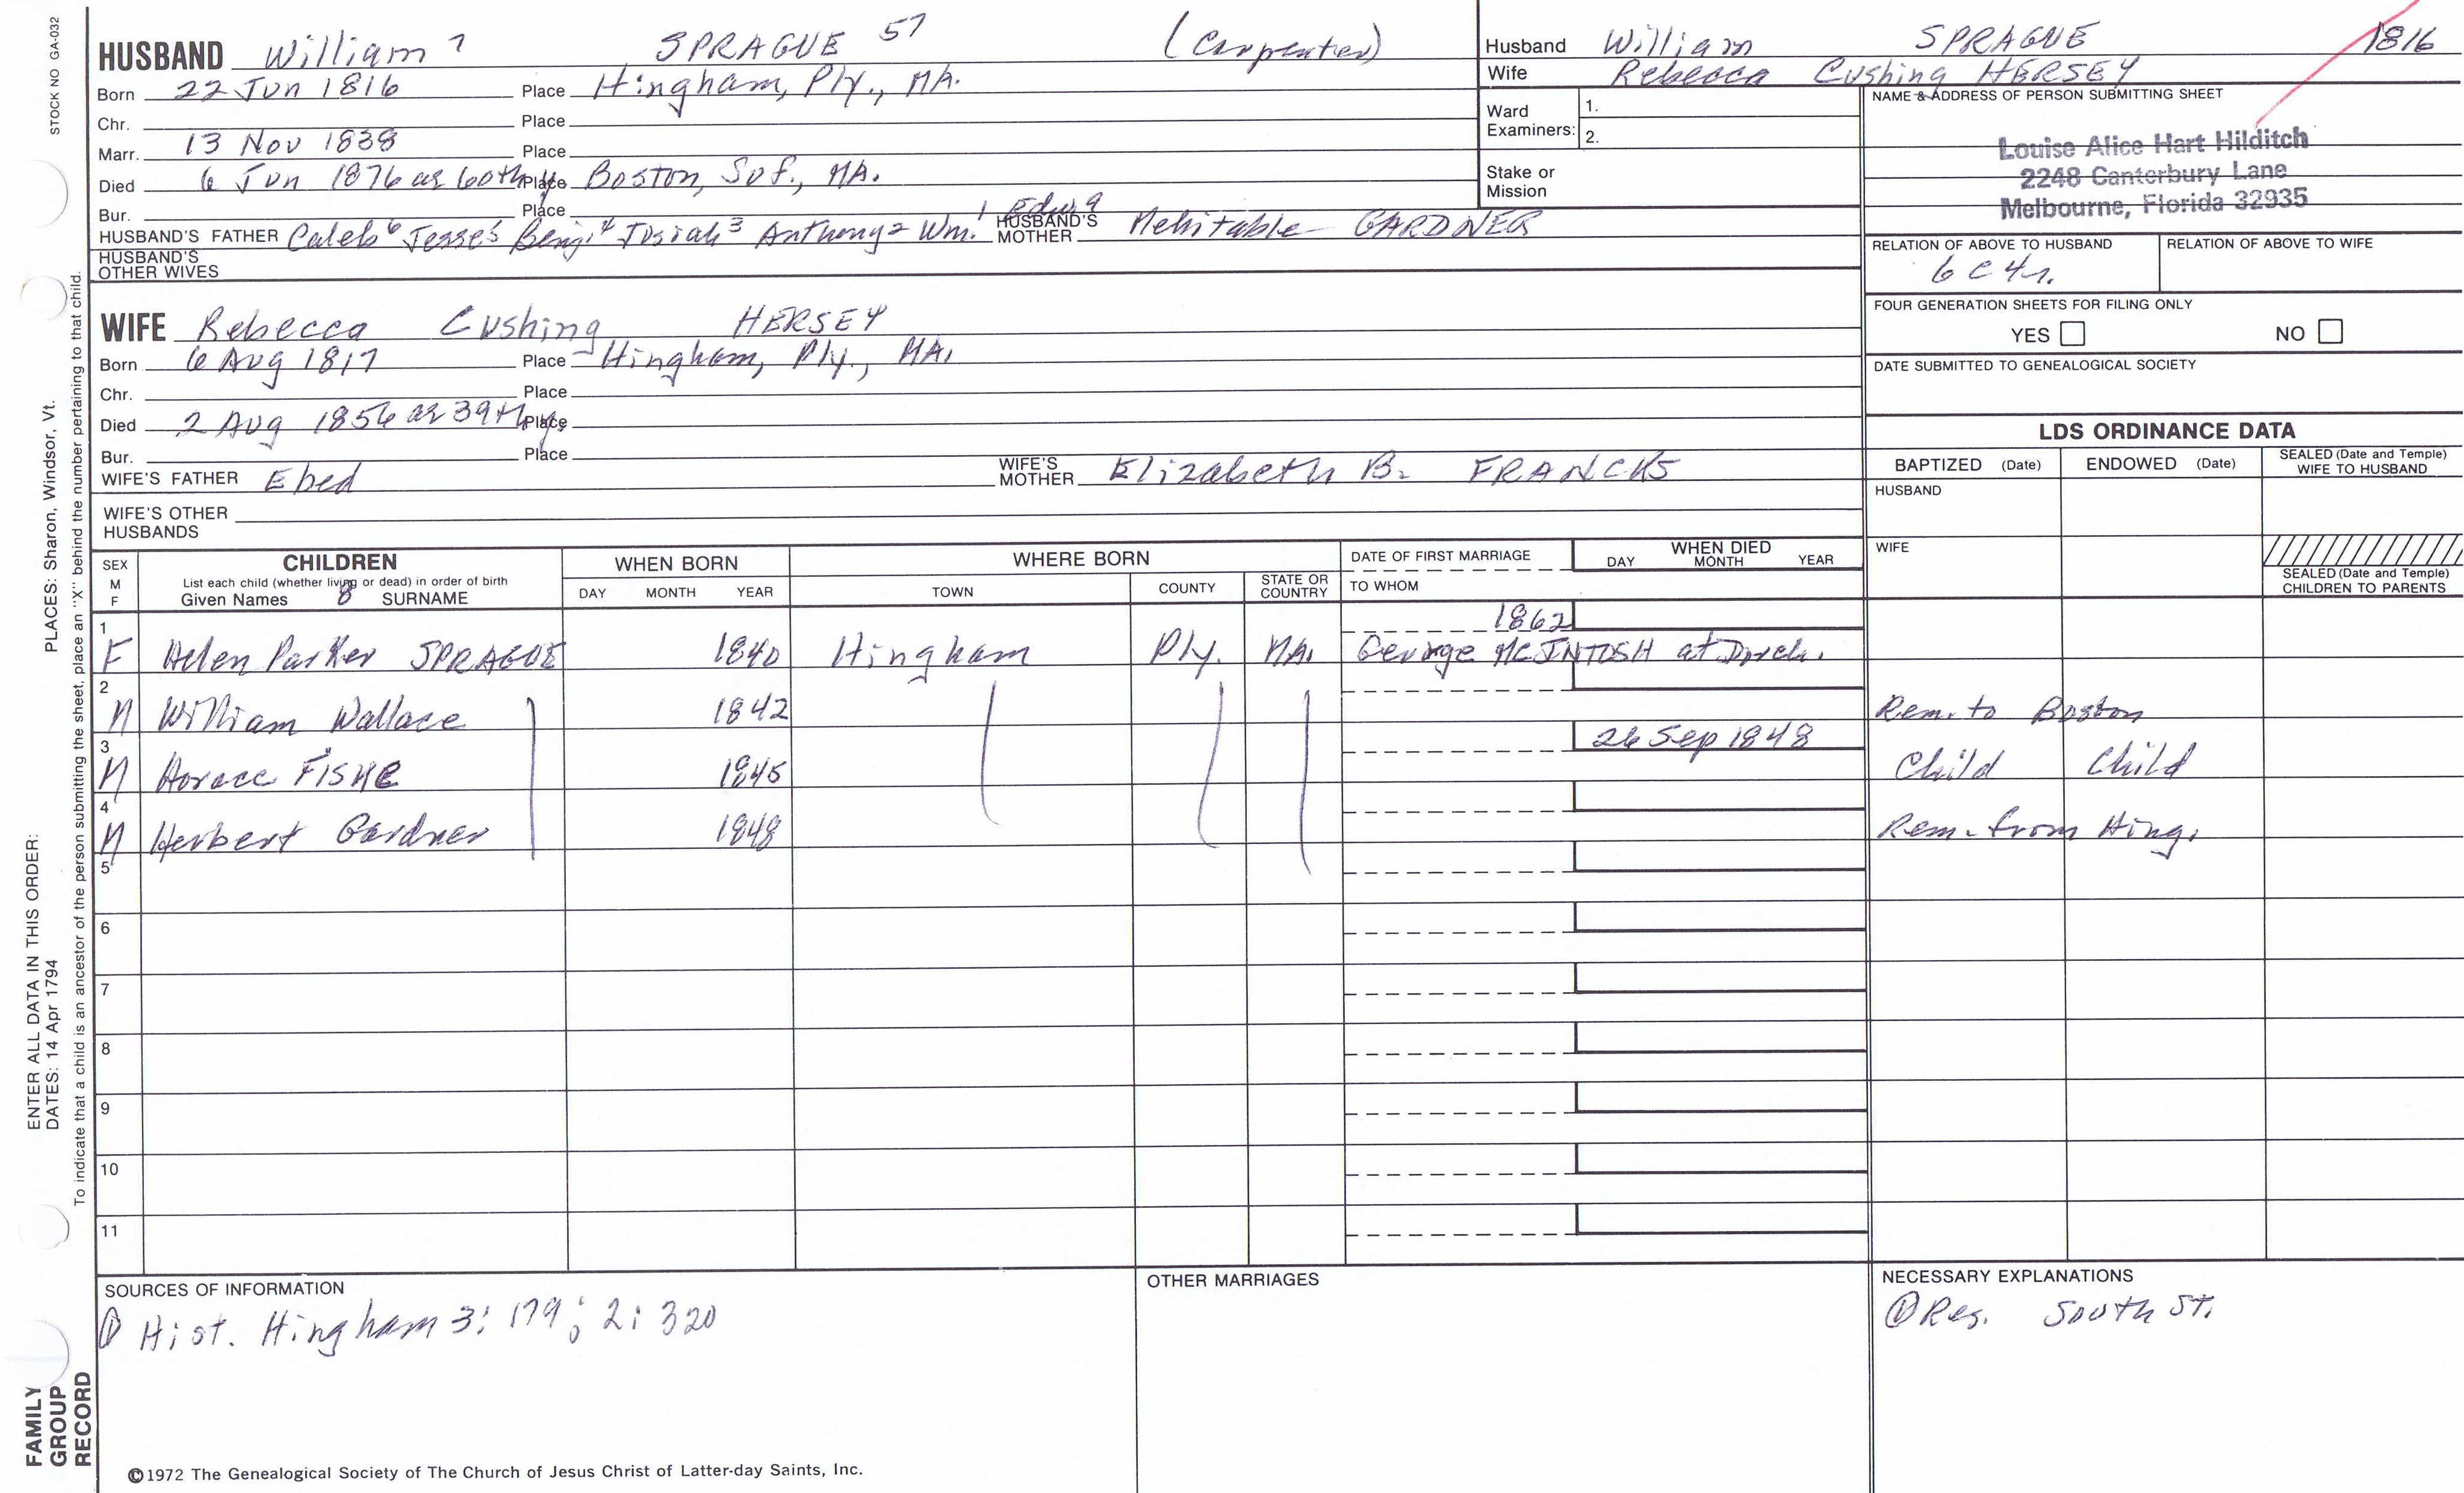 STOCK NO GA-032
HUSBAND William 7 SPRAGUE 57 (Carpenter)
Born 22 Jun 1816 Place Hingham, Ply., MA.
Chr. Place
Marr. 13 Nov 1838 Place
Died 6 Jun 1876 ae 60th y Place Boston, Suf., MA.
Bur. Place
HUSBAND'S FATHER Caleb 6 Jesse 5 Benj. 4 Josiah 3 Anthony 2 Wm. 1 Edw. HUSBAND'S MOTHER Mehitable GARDNER
HUSBAND'S OTHER WIVES
WIFE Rebecca Cushing HERSEY
Born 6 Aug 1817 Place Hingham, Ply., MA.
Chr. Place
Died 2 Aug 1856 ae 39th y. Place
Bur. Place
WIFE'S FATHER Ebed WIFE'S MOTHER Elizabeth B. FRANCKS
WIFE'S OTHER HUSBANDS
Husband William SPRAGUE 1816
Wife Rebecca Cushing HERSEY
Ward Examiners: 1.
2.
Stake or Mission
NAME & ADDRESS OF PERSON SUBMITTING SHEET
Louise Alice Hart Hilditch
2248 Canterbury Lane
Melbourne, Florida 32935
RELATION OF ABOVE TO HUSBAND RELATION OF ABOVE TO WIFE
6 C 4 r.
FOUR GENERATION SHEETS FOR FILING ONLY
YES NO
DATE SUBMITTED TO GENEALOGICAL SOCIETY
LDS ORDINANCE DATA
BAPTIZED (Date) ENDOWED (Date) SEALED (Date and Temple) WIFE TO HUSBAND
HUSBAND
WIFE
SEALED (Date and Temple) CHILDREN TO PARENTS
SEX M F CHILDREN WHEN BORN WHERE BORN DATE OF FIRST MARRIAGE WHEN DIED
List each child (whether living or dead) in order of birth
Given Names 8 SURNAME DAY MONTH YEAR TOWN COUNTY STATE OR COUNTRY TO WHOM DAY MONTH YEAR
1 1862
F Helen Parker SPRAGUE 1840 Hingham Ply. MA. George McINTOSH at Dorch.
2
M William Wallace 1842 Rem. to Boston
3 26 Sep 1848
M Horace FISKE 1845 Child Child
4
M Herbert Gardner 1848 Rem. from Hing.
5
6
7
8
9
10
11
SOURCES OF INFORMATION
① Hist. Hingham 3: 179; 2: 320
OTHER MARRIAGES
NECESSARY EXPLANATIONS
① Res. South St.
©1972 The Genealogical Society of The Church of Jesus Christ of Latter-day Saints, Inc.
ENTER ALL DATA IN THIS ORDER:
DATES: 14 Apr 1794 PLACES: Sharon, Windsor, Vt.
To indicate that a child is an ancestor of the person submitting the sheet, place an "X" behind the number pertaining to that child.
FAMILY
GROUP
RECORD